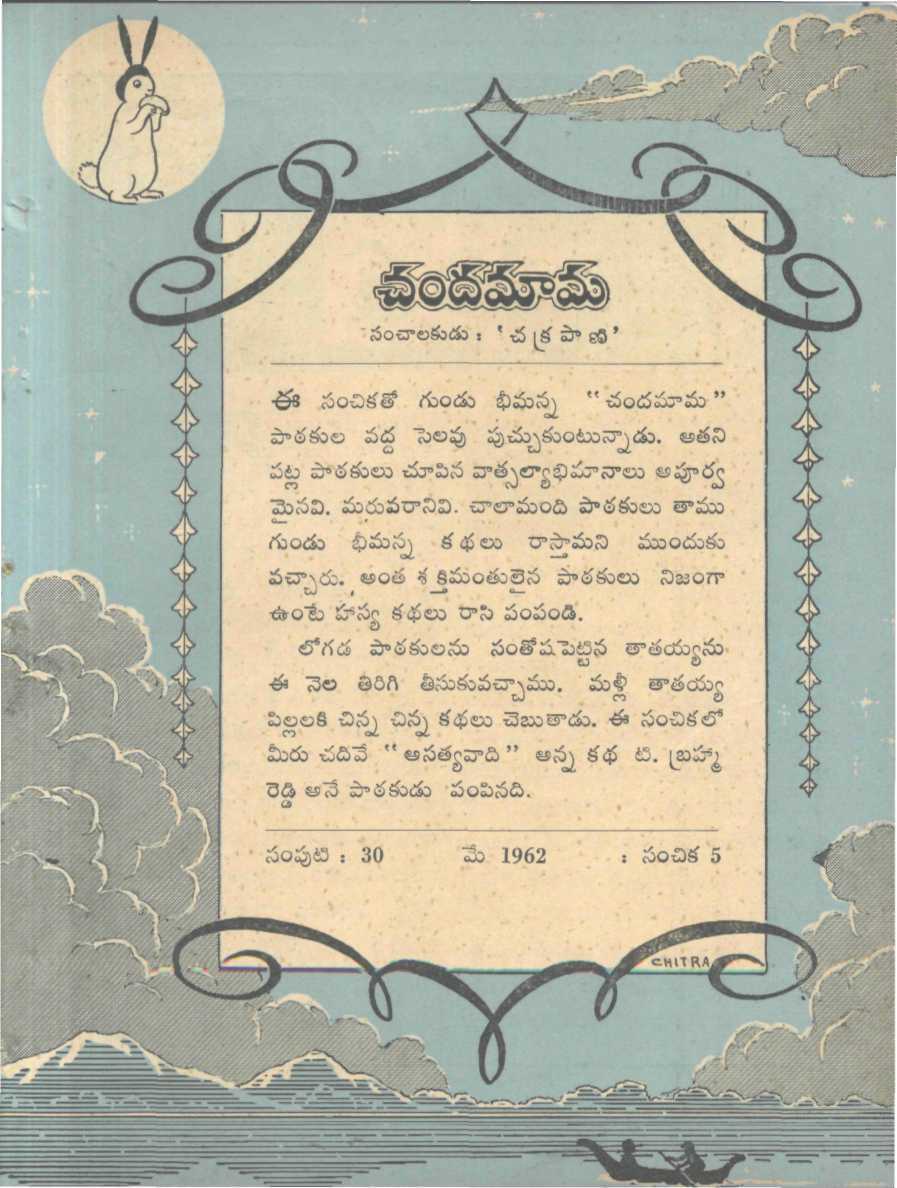 చందమామ
సంచాలకుడు : ‘చక్రపాణి’
ఈ సంచికతో గుండు భీమన్న “చందమామ”
పాఠకుల వద్ద సెలవు పుచ్చుకుంటున్నాడు. అతని
పట్ల పాఠకులు చూపిన వాత్సల్యాభిమానాలు అపూర్వ
మైనవి. మరువరానివి. చాలామంది పాఠకులు తాము
గుండు భీమన్న కథలు రాస్తామని ముందుకు
వచ్చారు. అంత శక్తిమంతులైన పాఠకులు నిజంగా
ఉంటే హాస్య కథలు రాసి పంపండి.
లోగడ పాఠకులను సంతోషపెట్టిన తాతయ్యను
ఈ నెల తిరిగి తీసుకువచ్చాము. మళ్లీ తాతయ్య
పిల్లలకి చిన్న చిన్న కథలు చెబుతాడు. ఈ సంచికలో
మీరు చదివే “అసత్యవాది” అన్న కథ టి. బ్రహ్మా
రెడ్డి అనే పాఠకుడు పంపినది.
సంపుటి : 30 మే 1962 : సంచిక 5
CHITRA